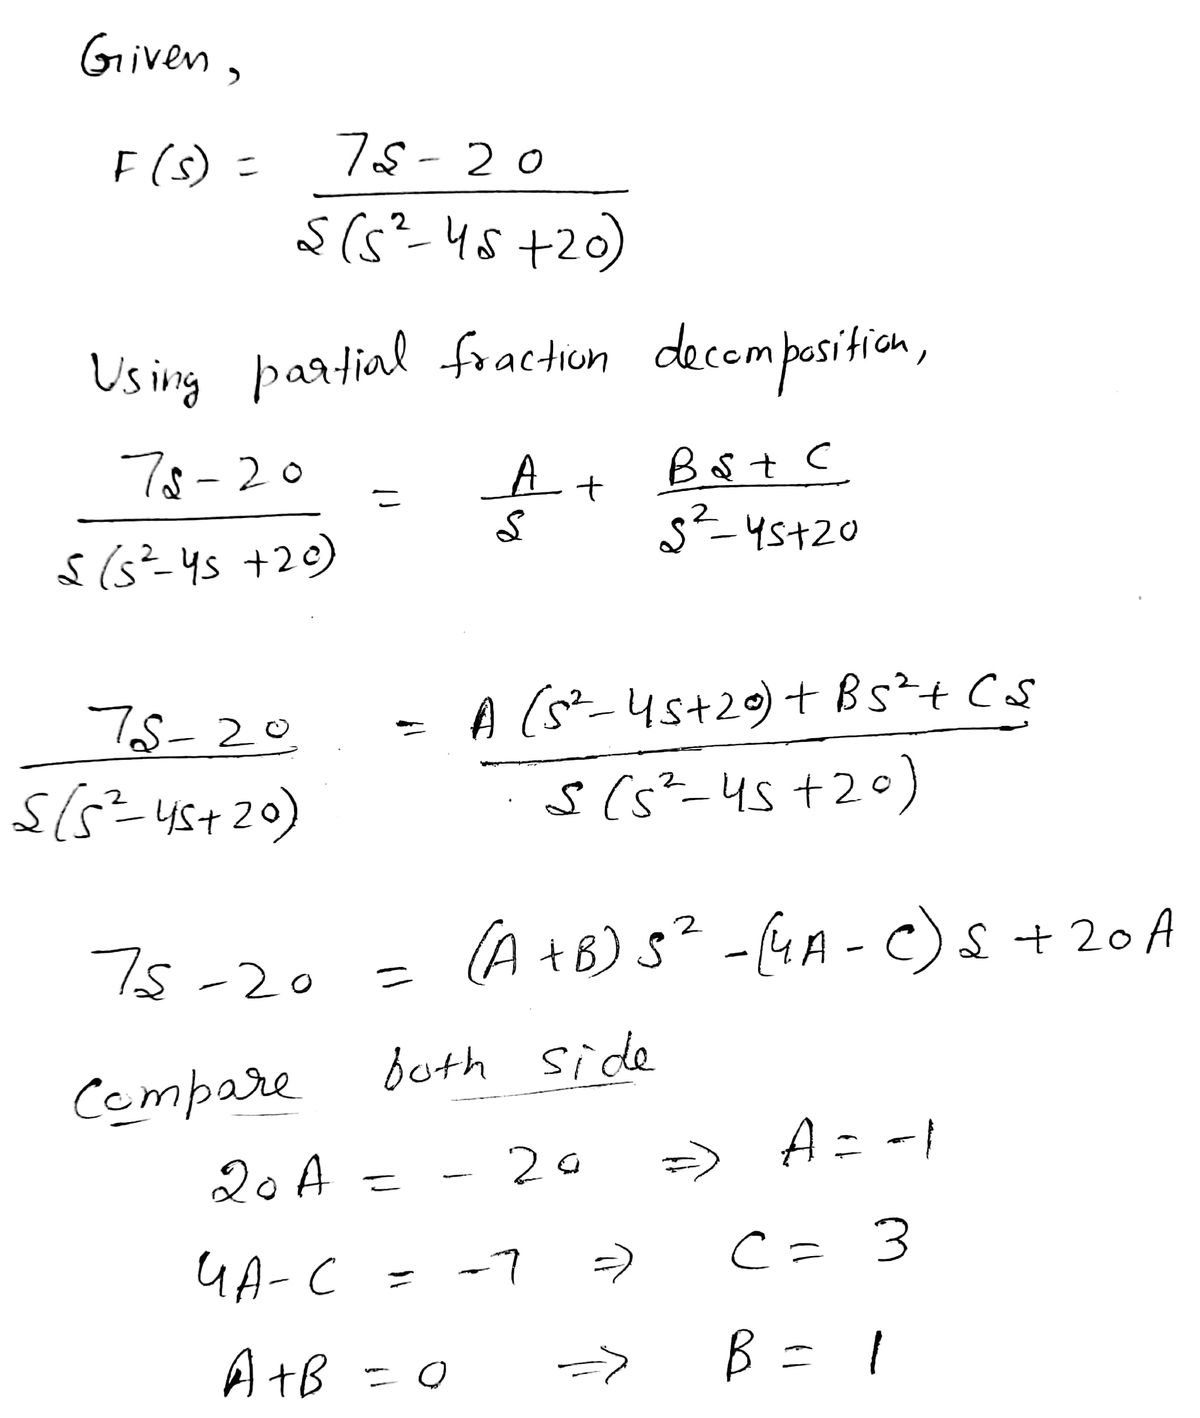 Given,
F(s) = 7s - 20
s(s² - 4s + 20)
Using partial fraction decomposition,
7s - 20 = A + Bs + C
s(s² - 4s + 20) s s² - 4s + 20
7s - 20 = A(s² - 4s + 20) + Bs² + Cs
s(s² - 4s + 20) s(s² - 4s + 20)
7s - 20 = (A + B)s² - (4A - C)s + 20A
Compare both side
20A = - 20 ⇒ A = -1
4A - C = -7 ⇒ C = 3
A + B = 0 ⇒ B = 1